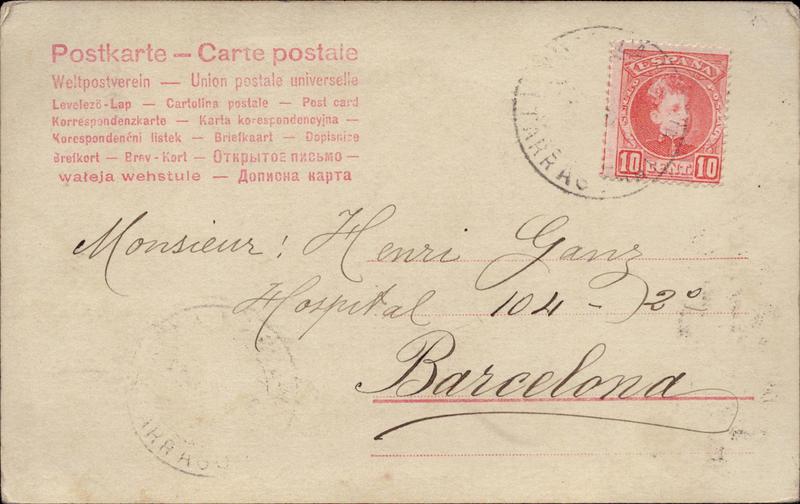 Postkarte — Carte postale
Weltpostverein — Union postale universelle
Levelező-Lap — Cartolina postale — Post card
Korrespondenzkarte — Karta korespondencyjna —
Korespondenční listek — Briefkaart — Dopisnice
Brefkort — Brev-Kort — Открытое письмо —
wałeja wehstule — Дописна карта
ESPAÑA
10 CENT 10
TARRAG
Monsieur: Henri Ganz
Hospital 104 - 2º
Barcelona
ARRAGO